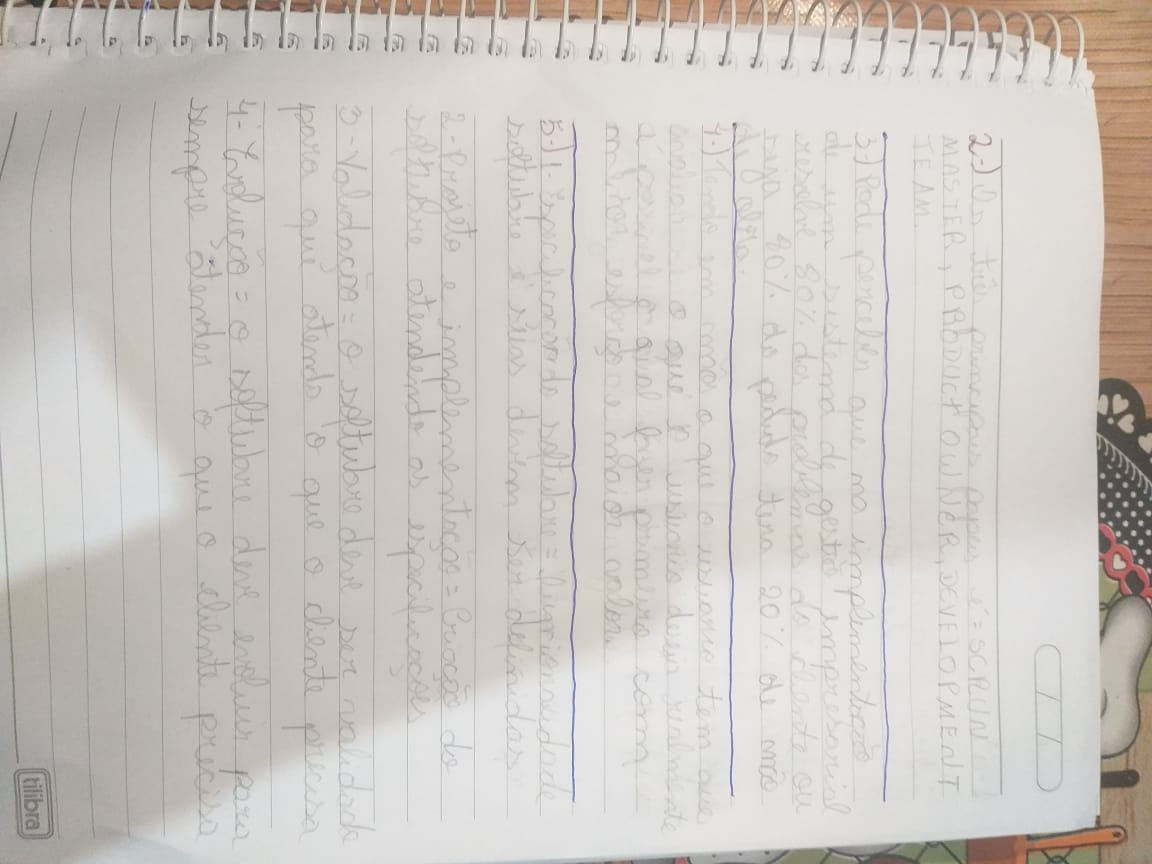 2-) Os três principais papeis é = SCRUM
MASTER, PRODUCT OWNER, DEVELOPMENT
TEAM.
3-) Pode perceber que na implementação
de um sistema de gestão impresarial
resolve 80% dos problemas do cliente ou
seja 80% do pedido tera 20% de mão
de obra.
4-) Tendo em mãos o que o usuario tem que
analisar o que o usuario deseja realmente
é possivel a qual fazer primeiro com
menor esforço e maior valor.
5-) 1- Especificação do softubare = funcionalidade
softubare e seus devem ser definidas
2- Projeto e implementação = Criação do
softubare atendendo as especificações
3- Validação = o softubare deve ser validado
para que atenda o que o cliente precisa
4- Evolução = o softubare deve evoluir para
sempre atender o que o cliente precisa
tilibra